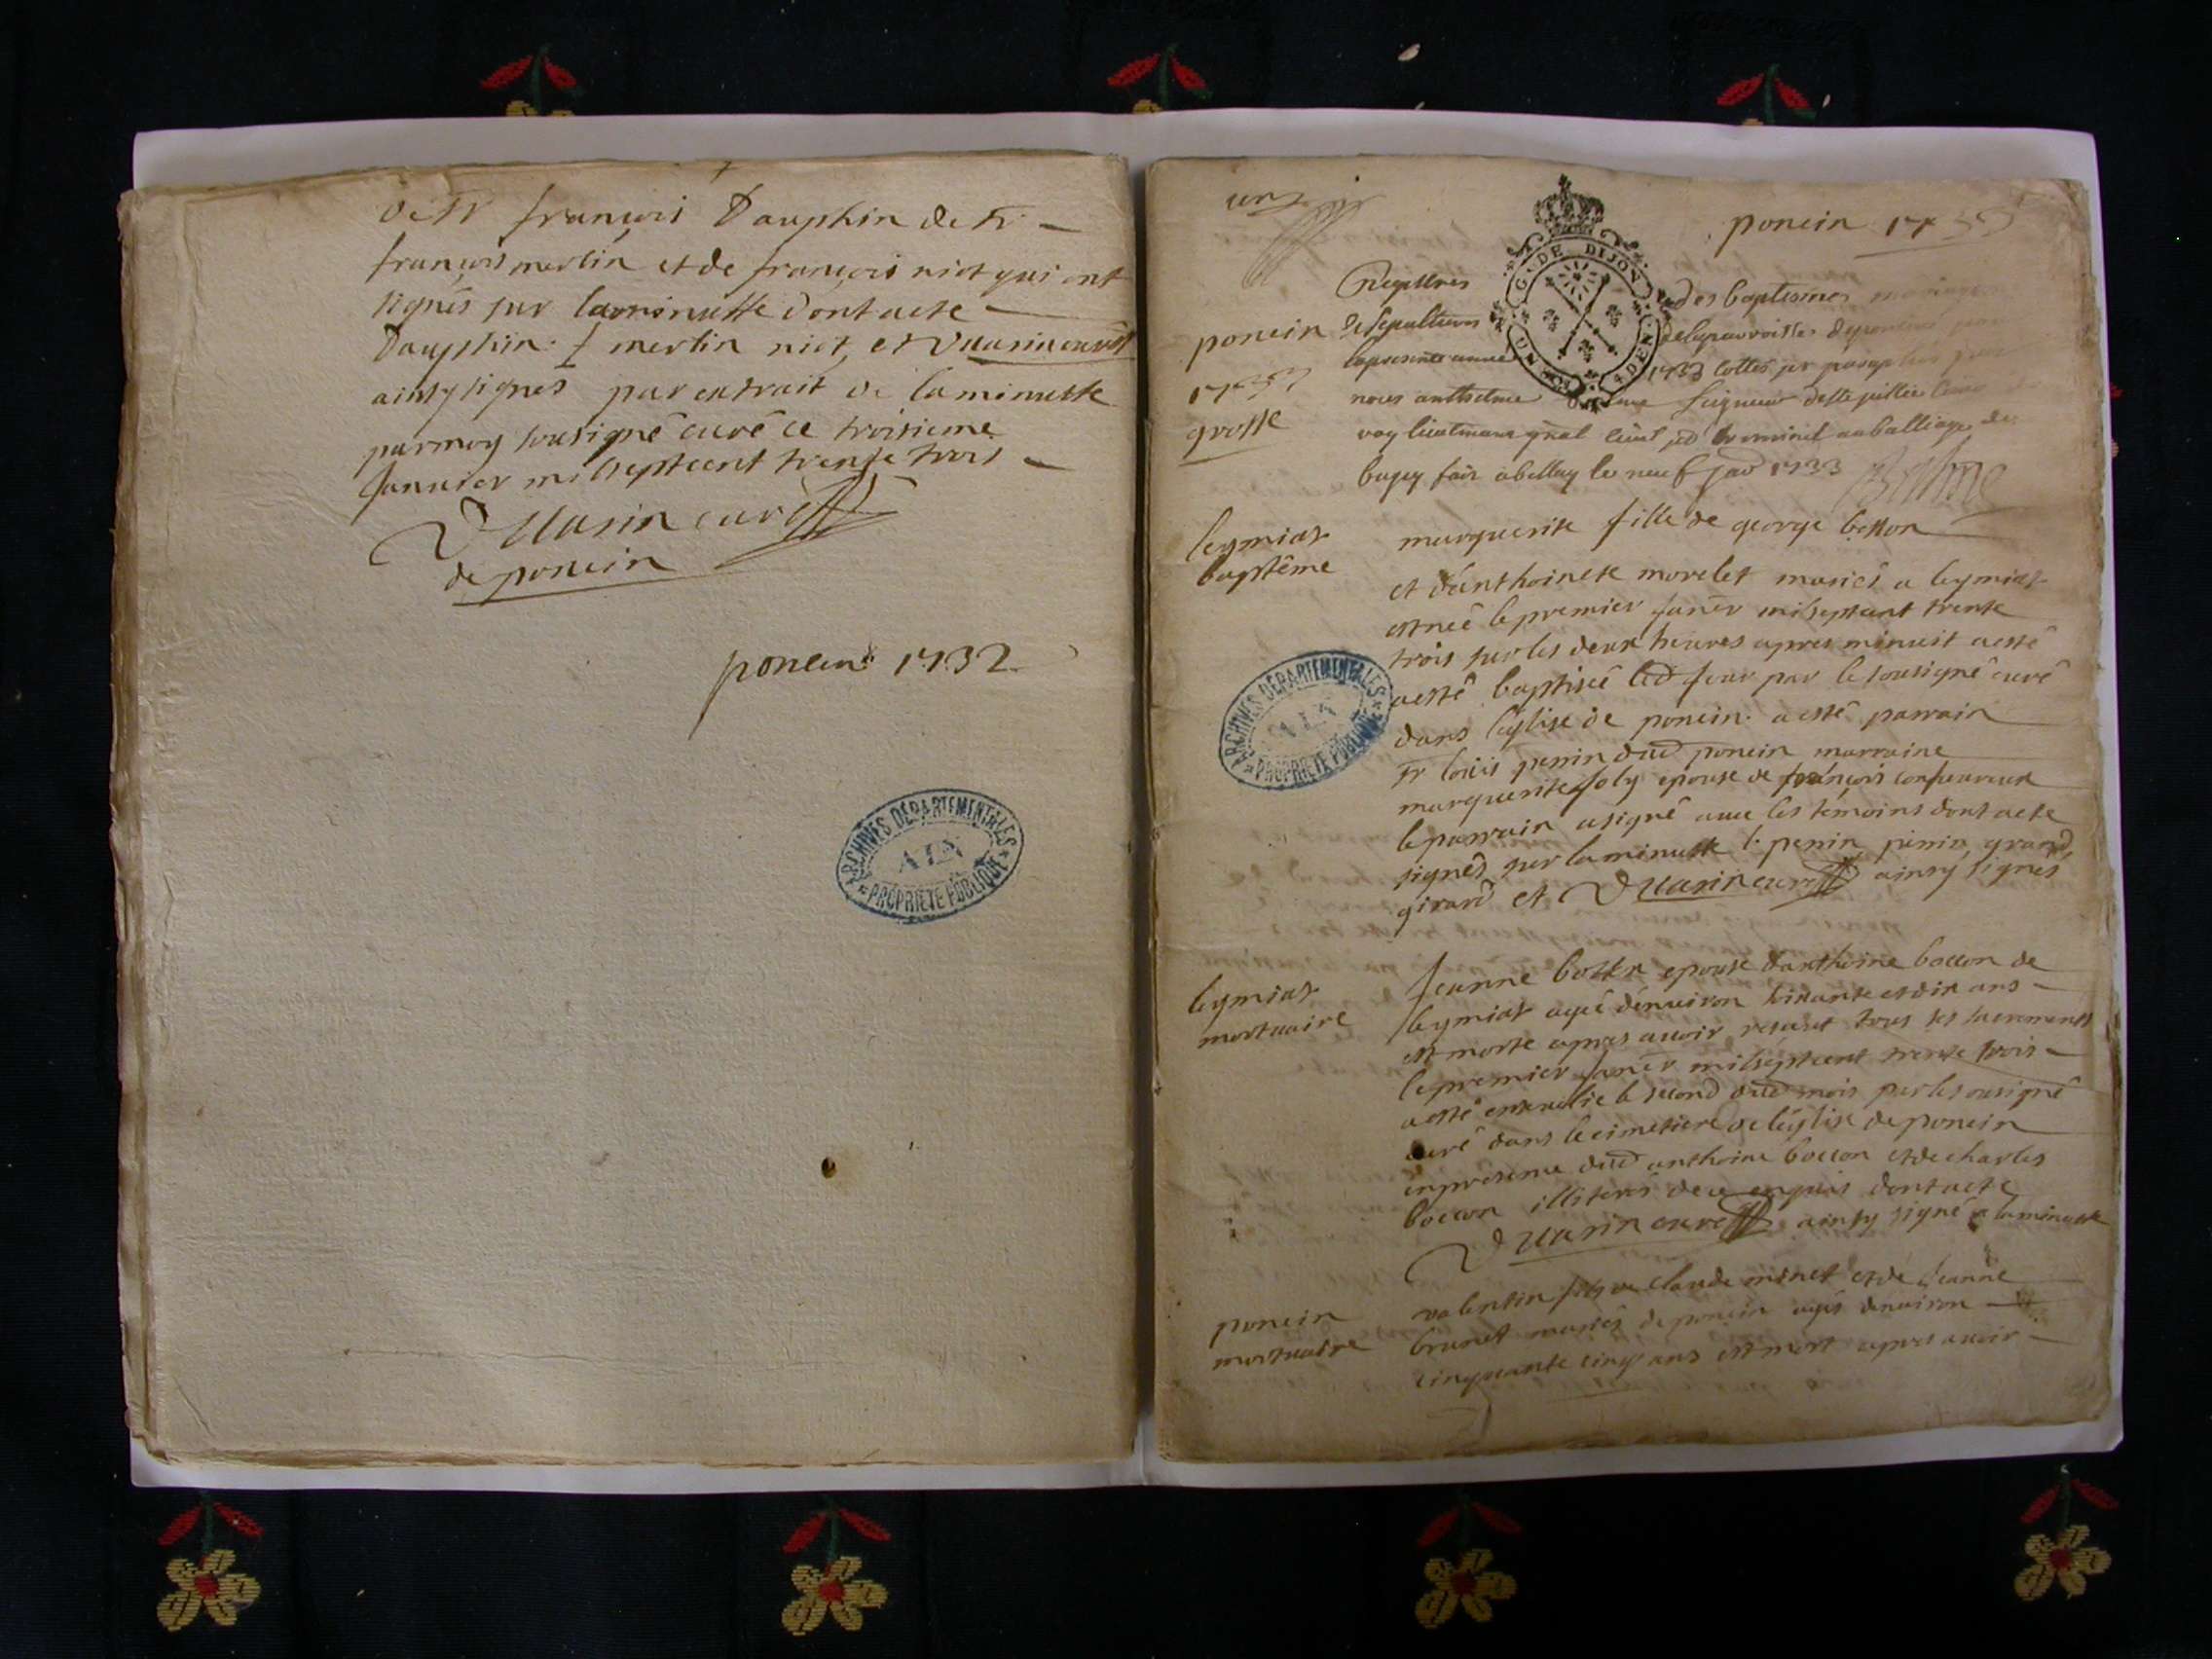 de Sr françois Dauphin de Sr
françois merlin et de françois niot qui ont
signés sur laminutte dont acte
Dauphin f merlin niot et Duarin curé
ainsy signés par extrait de laminutte
parmoy sousigné curé ce troisieme
Janvier mil septcent trente trois
Duarin curé
de poncin
poncin 1732
ARCHIVES DEPARTEMENTALES
AIN
PROPRIETE PUBLIQUE
poncin 17
G. DE DIJON
UN
DEN
poncin
grosse
Registres des baptesmes mariages
& sepultures
1733 cottes
bugey a bellay le neuf 1733
leymiat
baptême
marguerite fille de george besson
et d'anthoinette morelet mariés a leymiat
est née le premier janër milseptcent trente
trois sur les deux heures apres minuit a esté
a esté baptisée led jour par le sousigné curé
dans l'église de poncin a esté parrain
Sr loüis perrin dud poncin marraine
marguerite joly epouse de françois
le parrain a signé avec les témoins dont acte
signés sur laminutte l. perrin perrin grand
girard et Duarin curé ainsy signés
ARCHIVES DEPARTEMENTALES
AIN
PROPRIETE PUBLIQUE
leymiat
mortuaire
Jeanne epouse d'anthoine boccon de
leymiat agée d'environ soixante et dix ans
est morte apres avoir receut tous ses sacrements
le premier janër milseptcent trente trois
a esté ensevelie le second dud mois par le sousigné
curé dans le cimetiere de l'église de poncin
en presence dud anthoine boccon et de charles
boccon illiterés de ce enquis dont acte
Duarin curé ainsy signé a laminutte
poncin
mortuaire
valentin fils de claude minet et de Jeanne
brunet mariés de poncin agé denviron
cinquante cinq ans est mort apres avoir